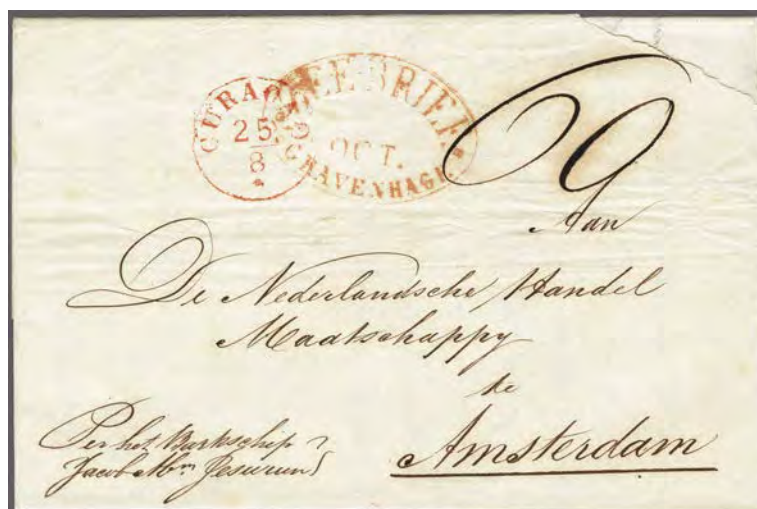 CURAÇ
25
8
ZEEBRIEF
OCT.
GRAVENHAGE
60
Aan
De Nederlandsche Handel
Maatschappy
te
Amsterdam
Per het Barkschip
Jacob Abm Jesurun